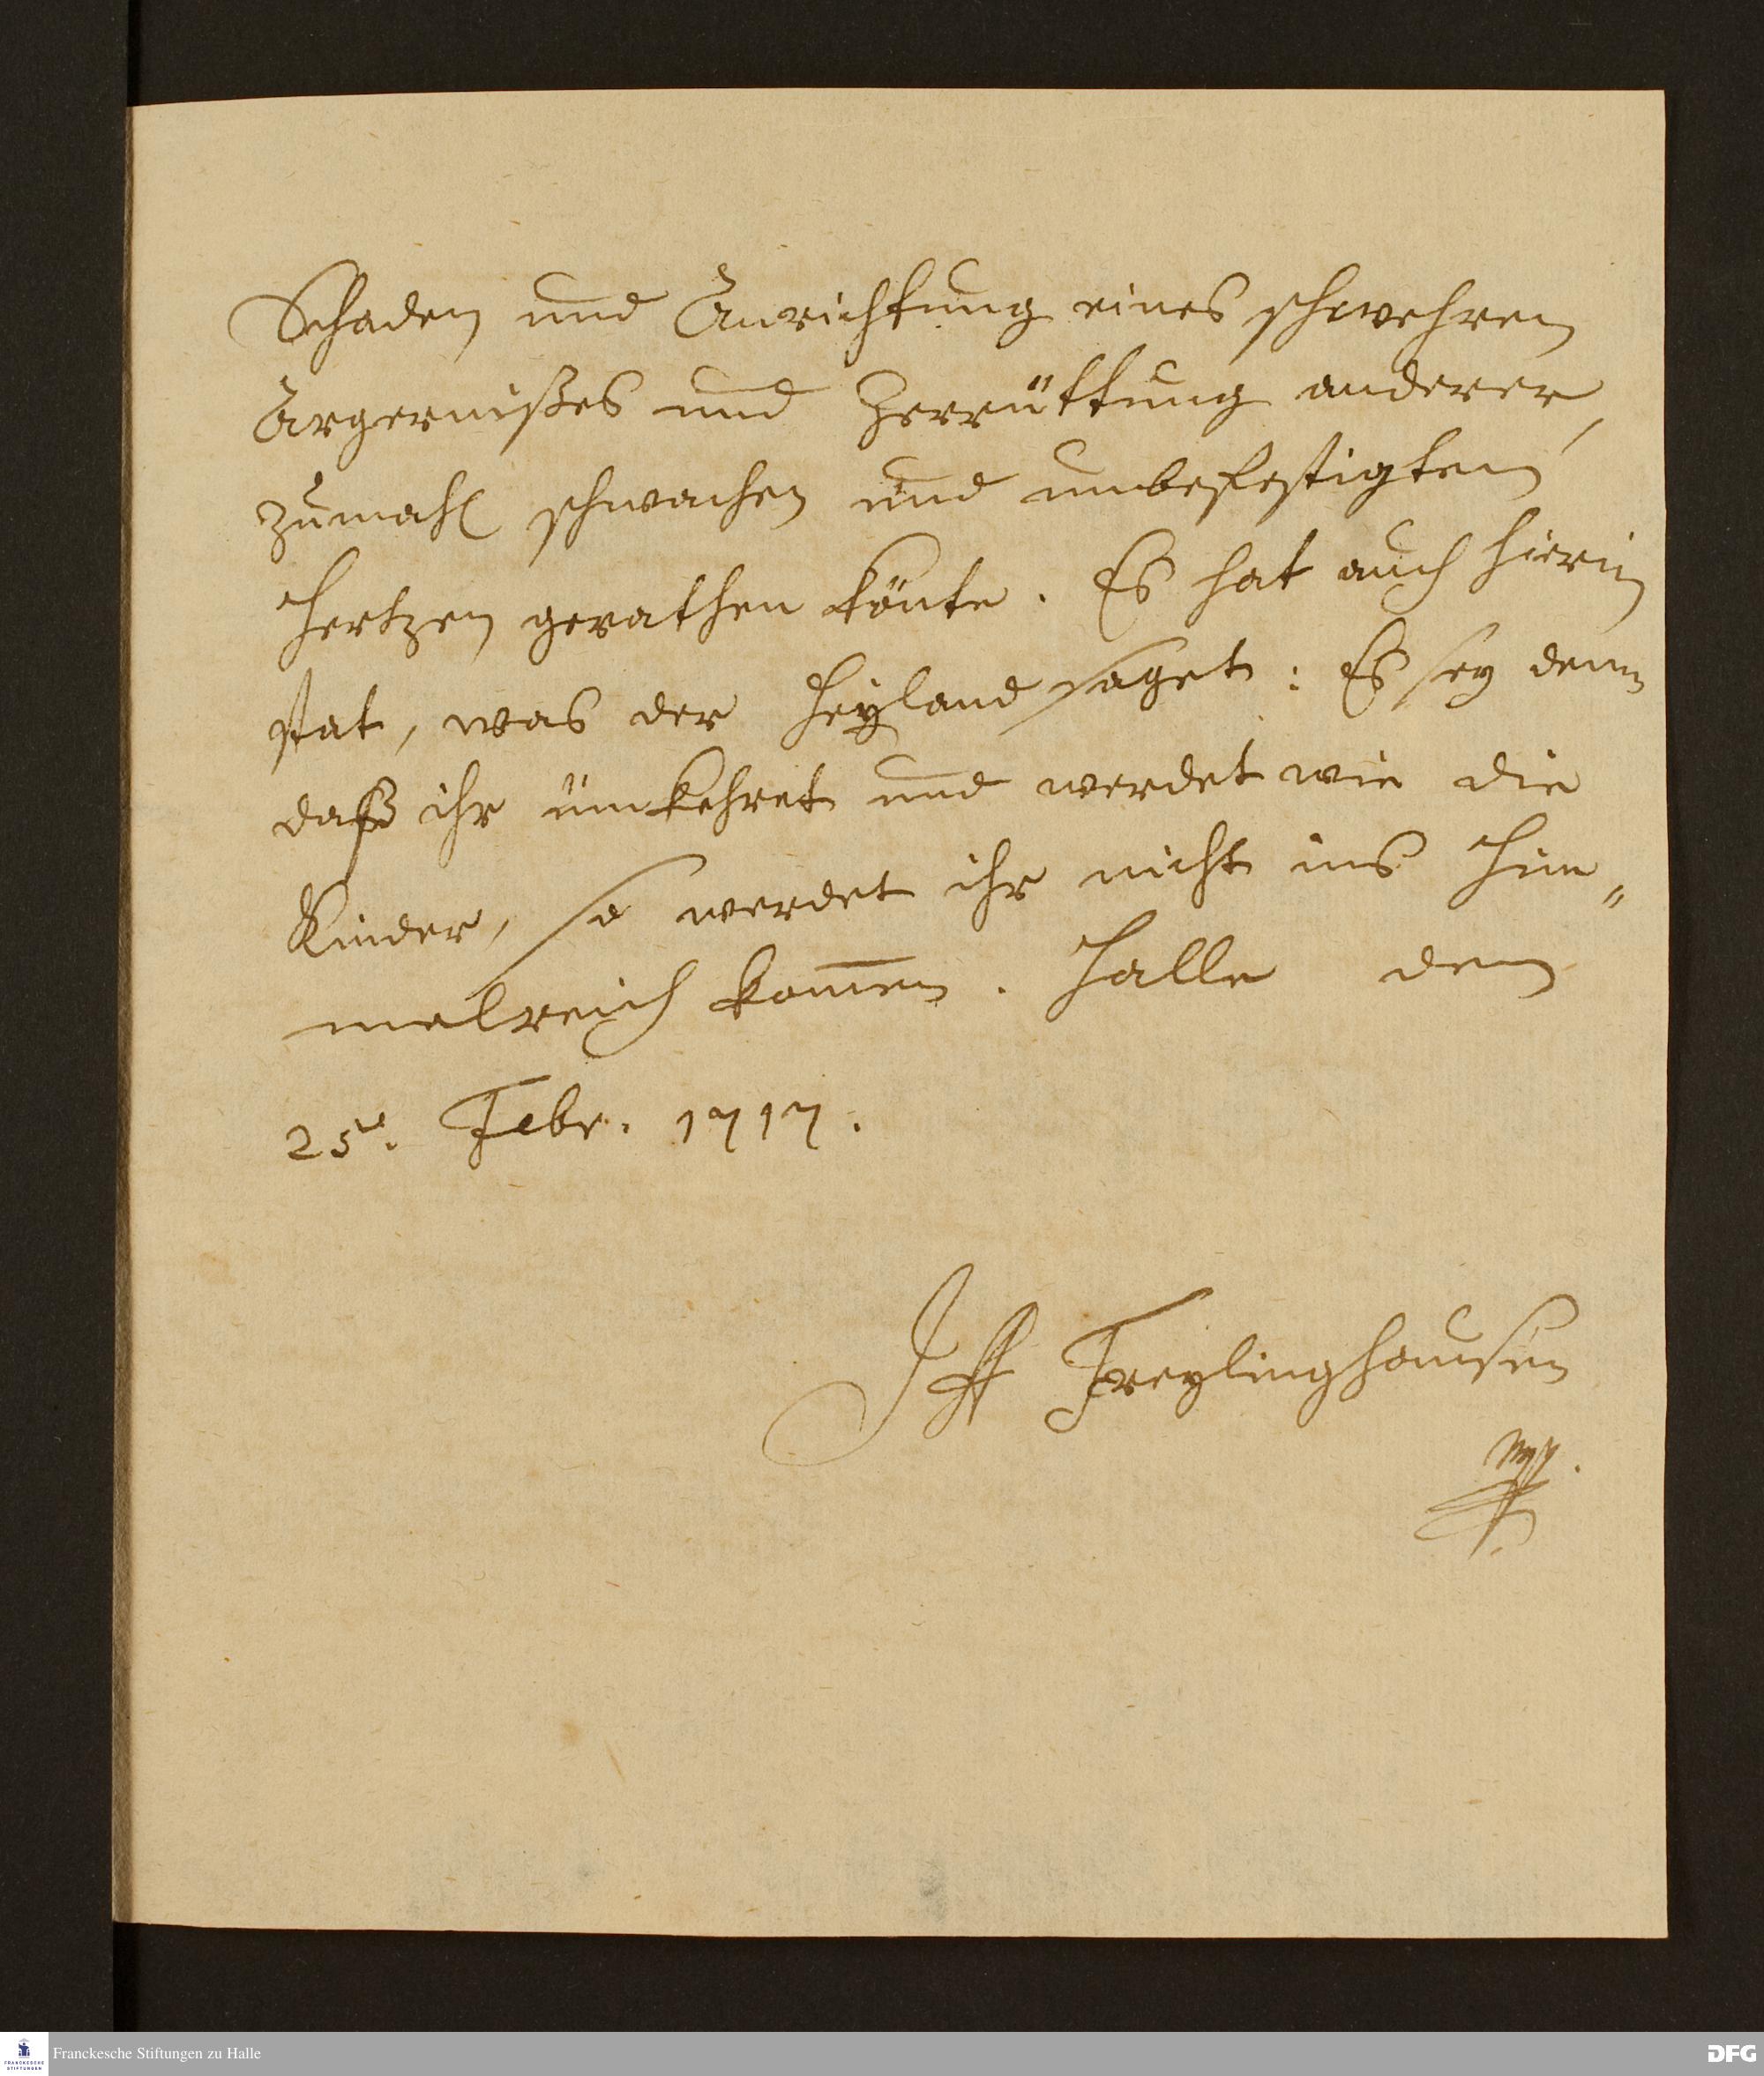 Schaden und Anrichtung eines schwehren
Ärgernißes und Zerrüttung anderer,
zumahl schwachen und unbefestigten
Hertzen gerathen könte. Es hat auch hierin
stat, was der Heyland saget: Es sey denn
daß ihr ümkehret und werdet wie die
Kinder, so werdet ihr nicht ins Him„
melreich kom̅en. Halle den
25ⁿ. Febr. 1717.
Freylinghausen
mp.
Franckesche Stiftungen zu Halle
FRANCKESCHE
STIFTUNGEN
DFG